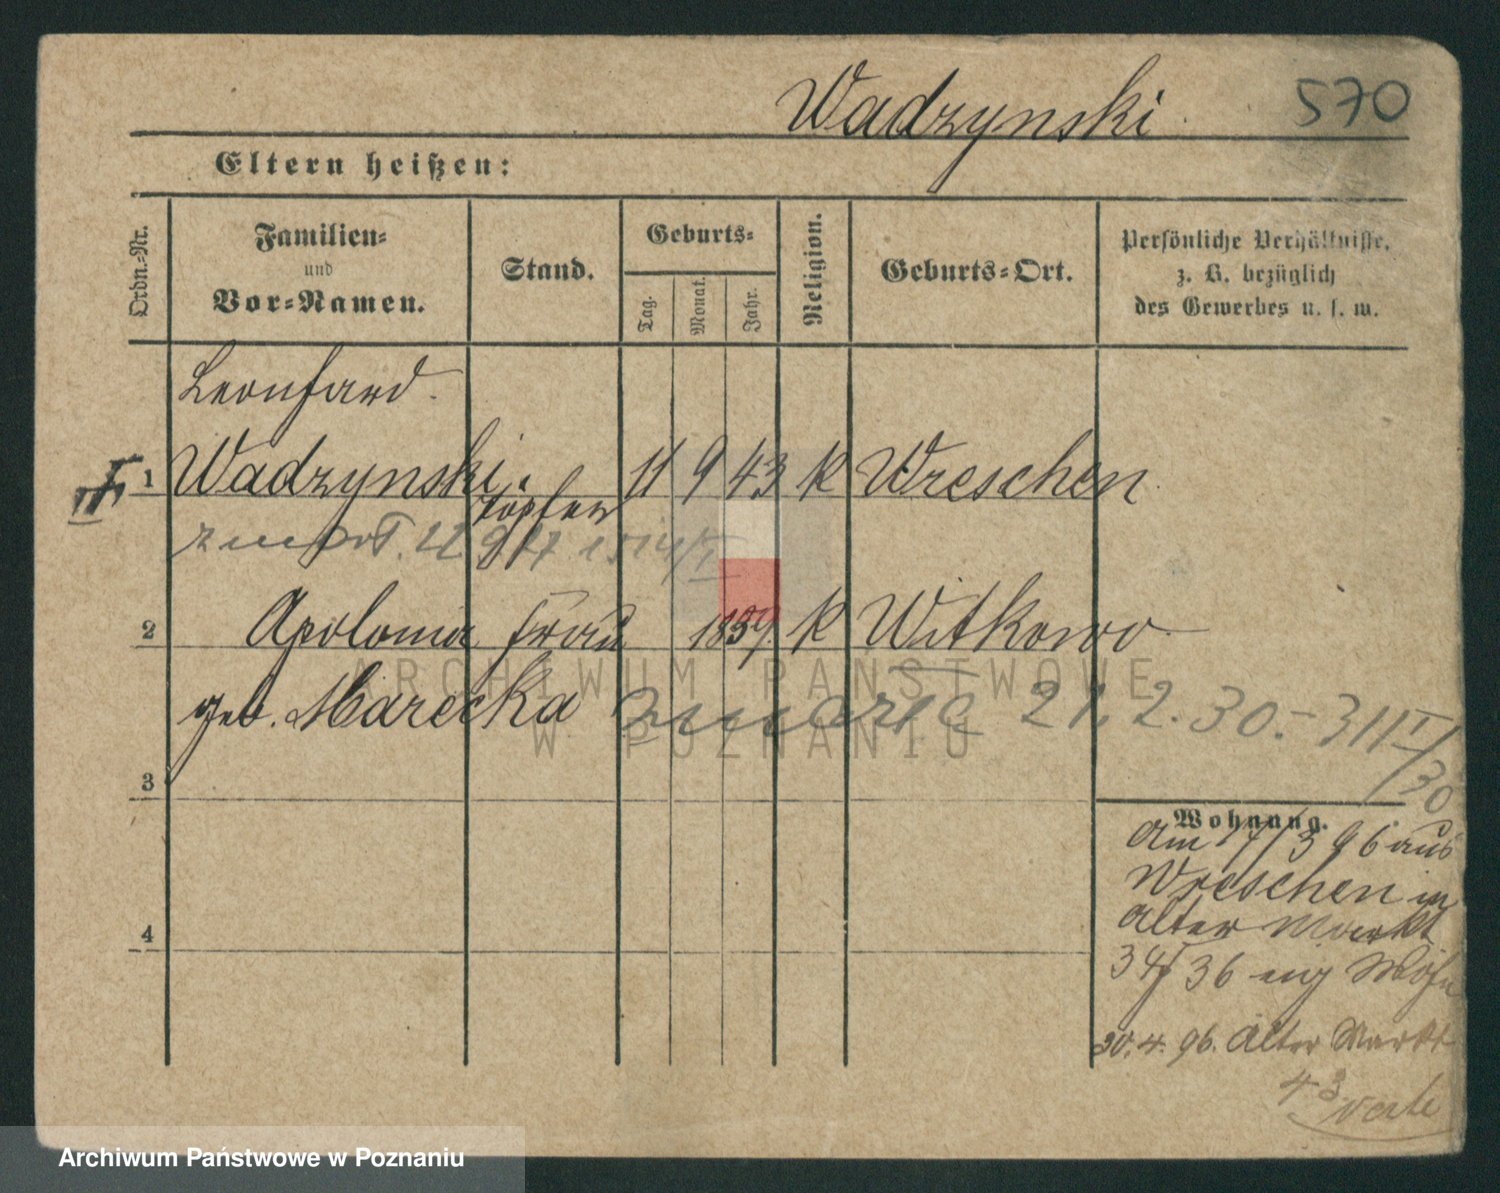 Wadzynski
570
Eltern heißen:
Ordn.-Nr.
Familien-
und
Vor-Namen.
Stand.
Geburts-
Tag.
Monat.
Jahr.
Religion.
Geburts-Ort.
Persönliche Verhältnisse,
z. B. bezüglich
des Gewerbes u. s. w.
Leonhard
1 Wadzynski. Töpfer 11 9 43 k Wreschen
2 Apolonia Frau 1859 k Witkowo
geb. Marecka zmarła 21. 2. 30. - 311
3
4
Wohnung.
Am 17/3 96 aus
Wreschen in
Alter Markt
36 eig Wohn
30. 4. 96. Alter Markt
43
ARCHIWUM PAŃSTWOWE
W POZNANIU
Archiwum Państwowe w Poznaniu